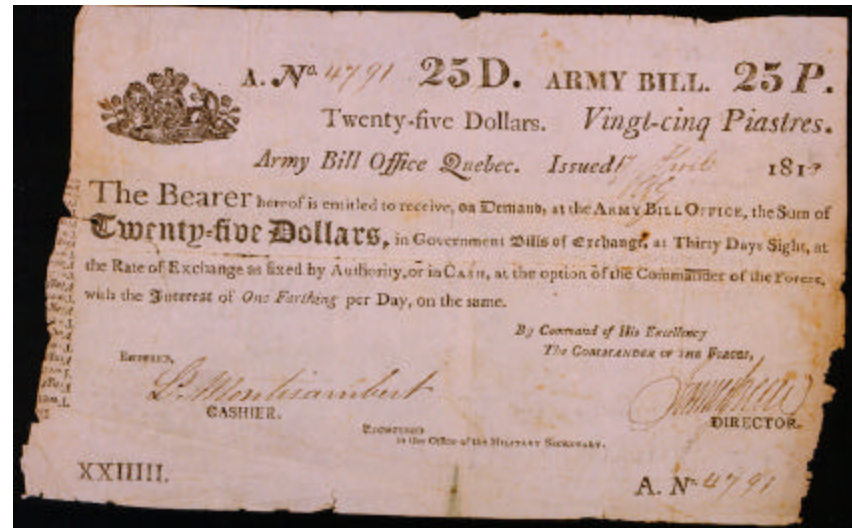 A. No. 4791 25 D. ARMY BILL. 25 P.
Twenty-five Dollars. Vingt-cinq Piastres.
Army Bill Office Quebec. Issued 17 April 1813
The Bearer hereof is entitled to receive, on Demand, at the ARMY BILL OFFICE, the Sum of
Twenty-five Dollars, in Government Bills of Exchange, at Thirty Days Sight, at
the Rate of Exchange as fixed by Authority, or in CASH, at the option of the Commander of the Forces,
with the Interest of One Farthing per Day, on the same.
By Command of His Excellency
The COMMANDER OF THE FORCES,
ENTERED,
L. Montizambert
CASHIER.
DIRECTOR.
REGISTERED
in the Office of the MILITARY SECRETARY.
XXIIIII.
A. No. 4791